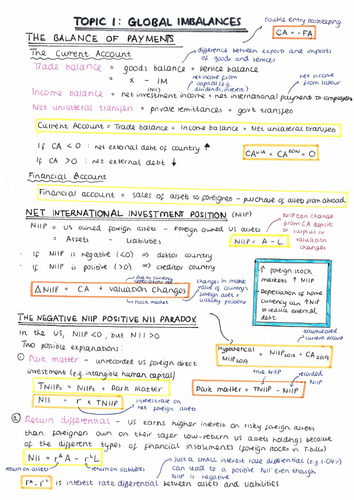 TOPIC 1: GLOBAL IMBALANCES
double entry bookkeeping
CA = -FA
THE BALANCE OF PAYMENTS
The Current Account
difference between exports and imports of goods and services
Trade balance = goods balance + service balance
= X - IM
net income from capital (e.g. dividends, interest)
(NII)
net income from labour
Income balance = net investment income + net international payments to employees
Net unilateral transfers = private remittances + govt transfers
Current Account = Trade balance + Income balance + Net unilateral transfers
If CA < 0 : net external debt of country ↑
If CA > 0 : net external debt ↓
CA^USA + CA^ROW = 0
Financial Account
Financial account = sales of assets to foreigners - purchase of assets from abroad
NET INTERNATIONAL INVESTMENT POSITION (NIIP)
NIIP = US owned foreign assets - Foreign owned US assets
= Assets - Liabilities
NIIP = A - L
NIIP can change from CA deficit or surplus or valuation changes
- If NIIP is negative (<0) ⇒ debtor country
- If NIIP is positive (>0) ⇒ creditor country
↑ foreign stock markets ↑ NIIP
Depreciation of home currency can ↑ NIIP or reduce external debt
due to currency
ΔNIIP = CA + valuation changes
stock market
changes in make value of country's foreign asset + liability positions
THE NEGATIVE NIIP POSITIVE NII PARADOX
In the US, NIIP < 0, but NII > 0
Two possible explanations:
accumulated current account
Hypothetical NIIP2019 = NIIP + CA2019
① Dark matter - unrecorded US foreign direct investment (e.g. intangible human capital)
TNIIP = NIIP + Dark Matter
NII = r × TNIIP
interest rate on net foreign assets
true NIIP
recorded NIIP
Dark matter = TNIIP - NIIP
② Return differential - US earns higher interest on risky foreign assets
than foreigners own on their safer low-return US assets holdings because
of the different types of financial instruments (foreign stocks vs T-bills)
NII = r^A A - r^L L
return on assets
return on liabilities
Just a small interest rate differential (e.g. 1.04%) can lead to a positive NII even though NIIP is negative
r^A - r^L is interest rate differential between assets and liabilities